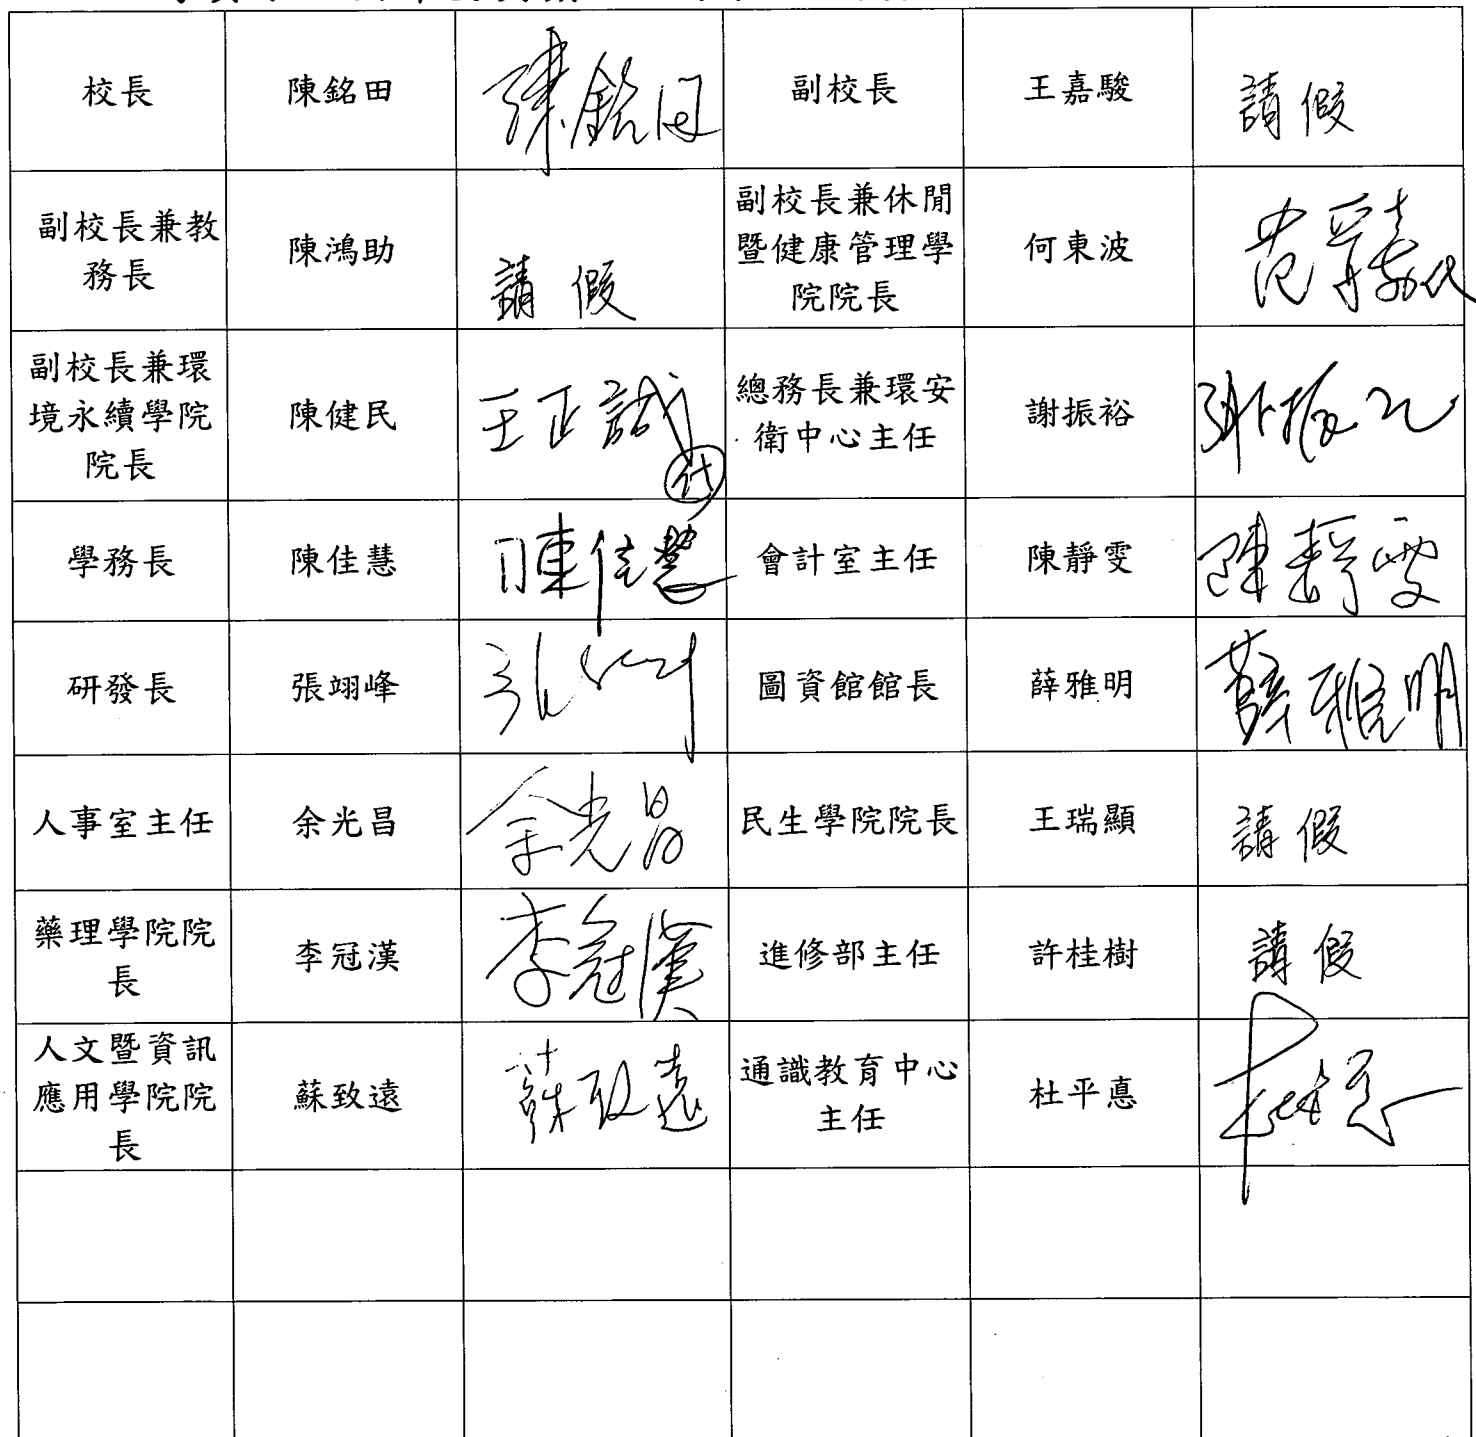 校長 陳銘田 陳銘田 副校長 王嘉駿 請假
副校長兼教
務長
陳鴻助 請假
副校長兼休閒
暨健康管理學
院院長
何東波
副校長兼環
境永續學院
院長
陳健民 王正誠 代
總務長兼環安
衛中心主任
謝振裕
學務長 陳佳慧 陳佳慧 會計室主任 陳靜雯 陳靜雯
研發長 張翊峰 圖資館館長 薛雅明 薛雅明
人事室主任 余光昌 余光昌 民生學院院長 王瑞顯 請假
藥理學院院
長
李冠漢 李冠漢 進修部主任 許桂樹 請假
人文暨資訊
應用學院院
長
蘇致遠 蘇致遠
通識教育中心
主任
杜平悳